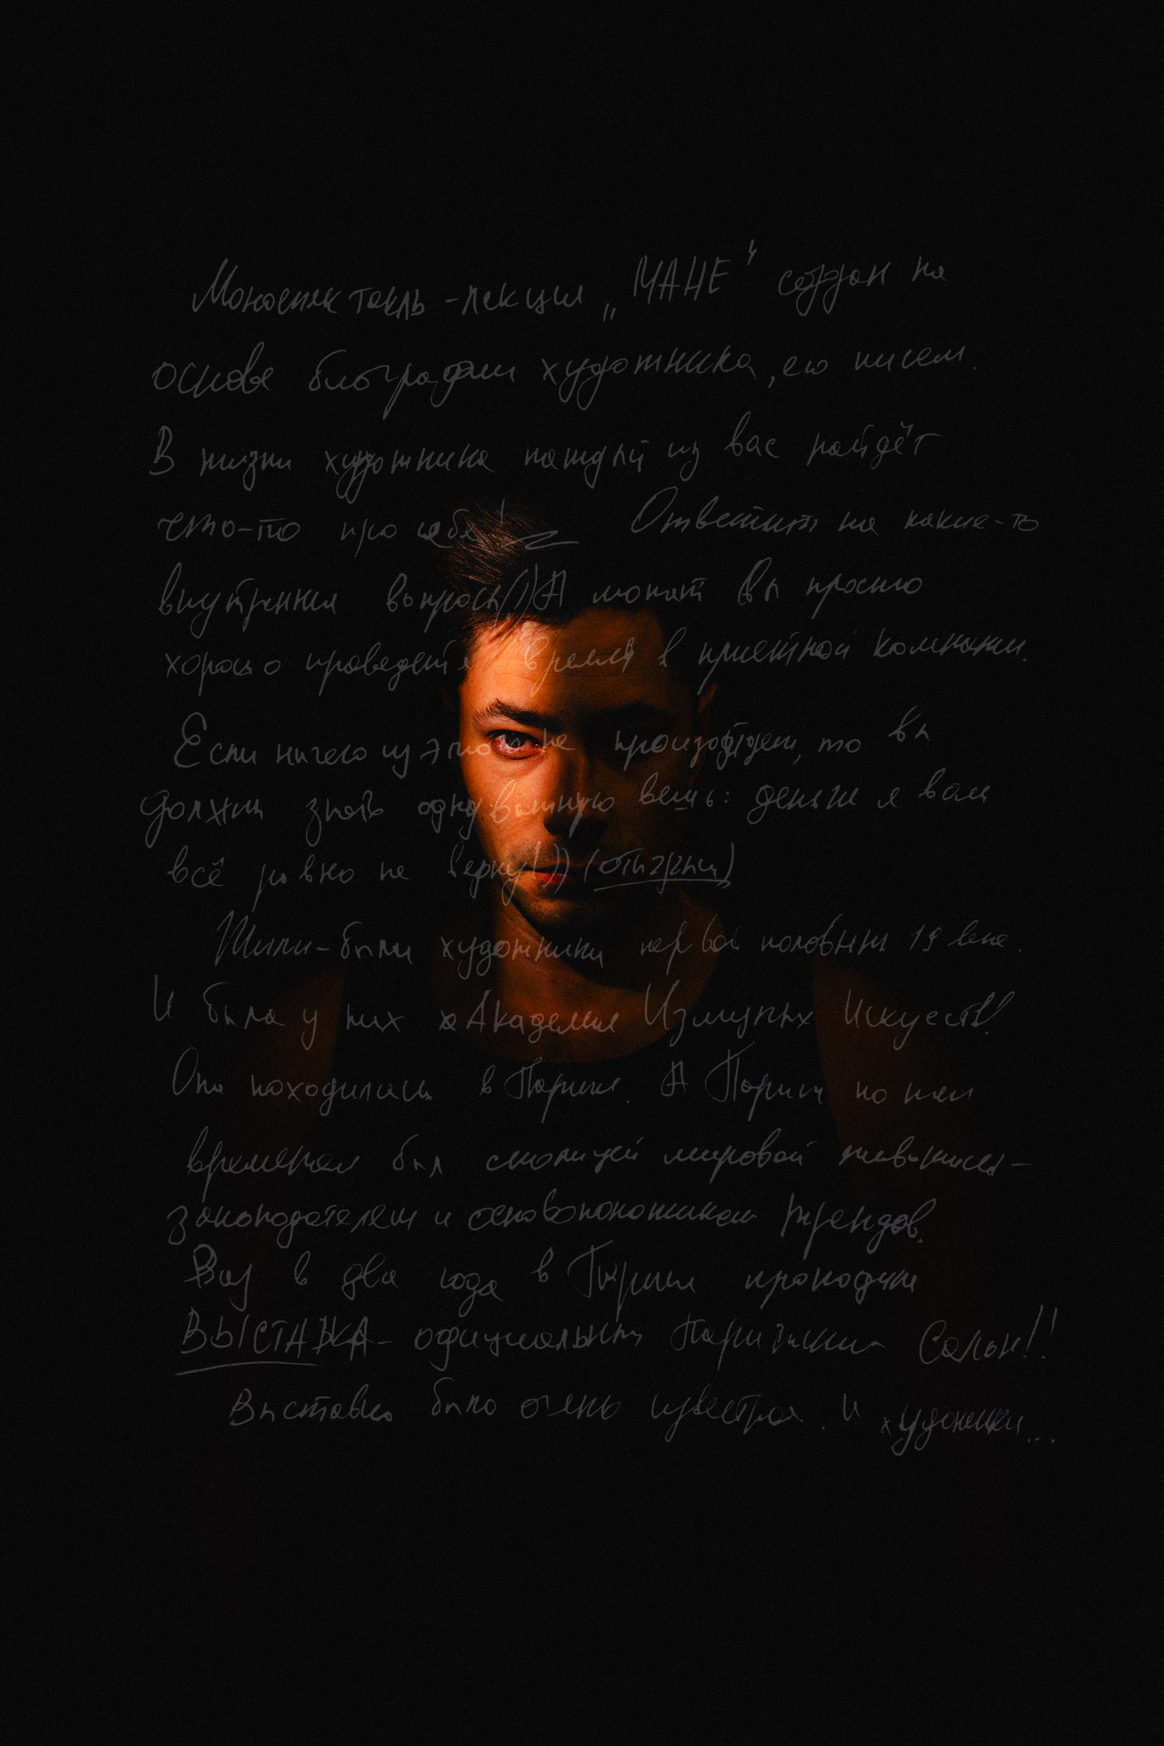 Моноспектакль-лекция „МАНЕ“ создан на
основе биографии художника, его писем.
В жизни художника каждый из вас найдёт
что-то про себя! Ответит на какие-то
внутренние вопросы! А может вы просто
хорошо проведёте время в приятной компании.
Если ничего из этого не произойдет, то вы
должны знать одну важную вещь: деньги я вам
всё равно не верну!)) (отыгрыш)
Жили-были художники первой половины 19 века.
И была у них Академия Изящных Искусств!
Она находилась в Париже. А Париж по тем
временам был столицей мировой живописи-
законодателем и основоположником трендов.
Раз в два года в Париже проходила
ВЫСТАВКА- официальный Парижский Салон!!
Выставка была очень известная. И художники...